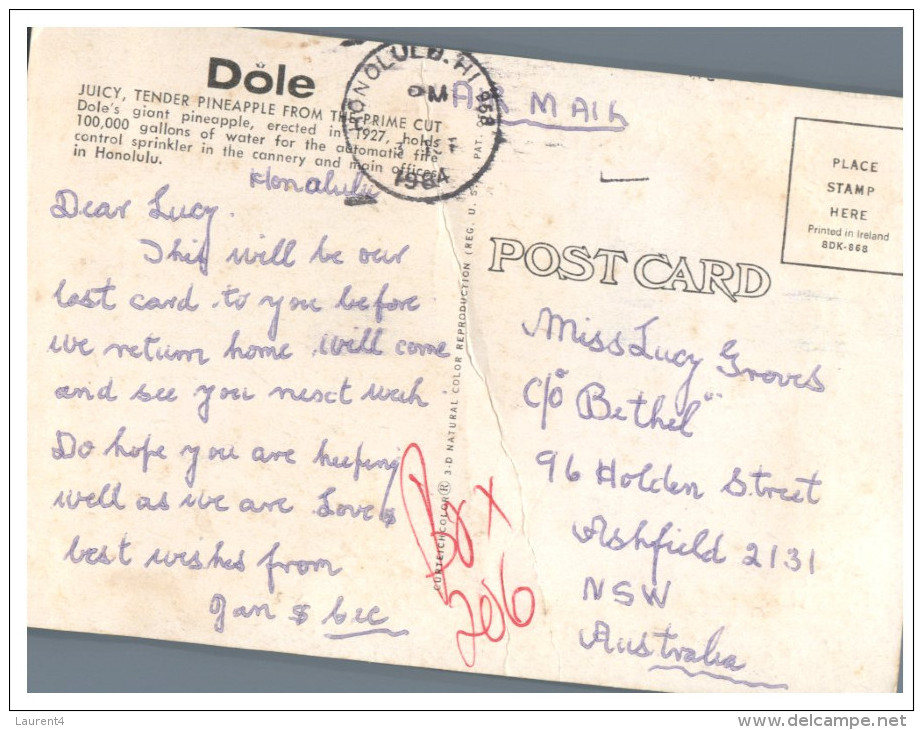 Dole
JUICY, TENDER PINEAPPLE FROM THE PRIME CUT
Dole's giant pineapple, erected in 1927, holds
100,000 gallons of water for the automatic fire
control sprinkler in the cannery and main offices
in Honolulu.
HONOLULU, HI 968
PM
1984
AIR MAIL
PLACE
STAMP
HERE
Printed in Ireland
8DK-868
POST CARD
CURTEICHCOLOR® 3-D NATURAL COLOR REPRODUCTION (REG. U.S. PAT.
Honalulu
Dear Lucy.
This will be our
last card to you before
we return home will come
and see you next week
Do hope you are keeping
well as we are Love &
best wishes from
Jan & Cec
Miss Lucy Groves
C/o "Bethel"
96 Holden Street
Ashfield 2131
NSW
Australia
Box
206
Laurent4
www.delcampe.net